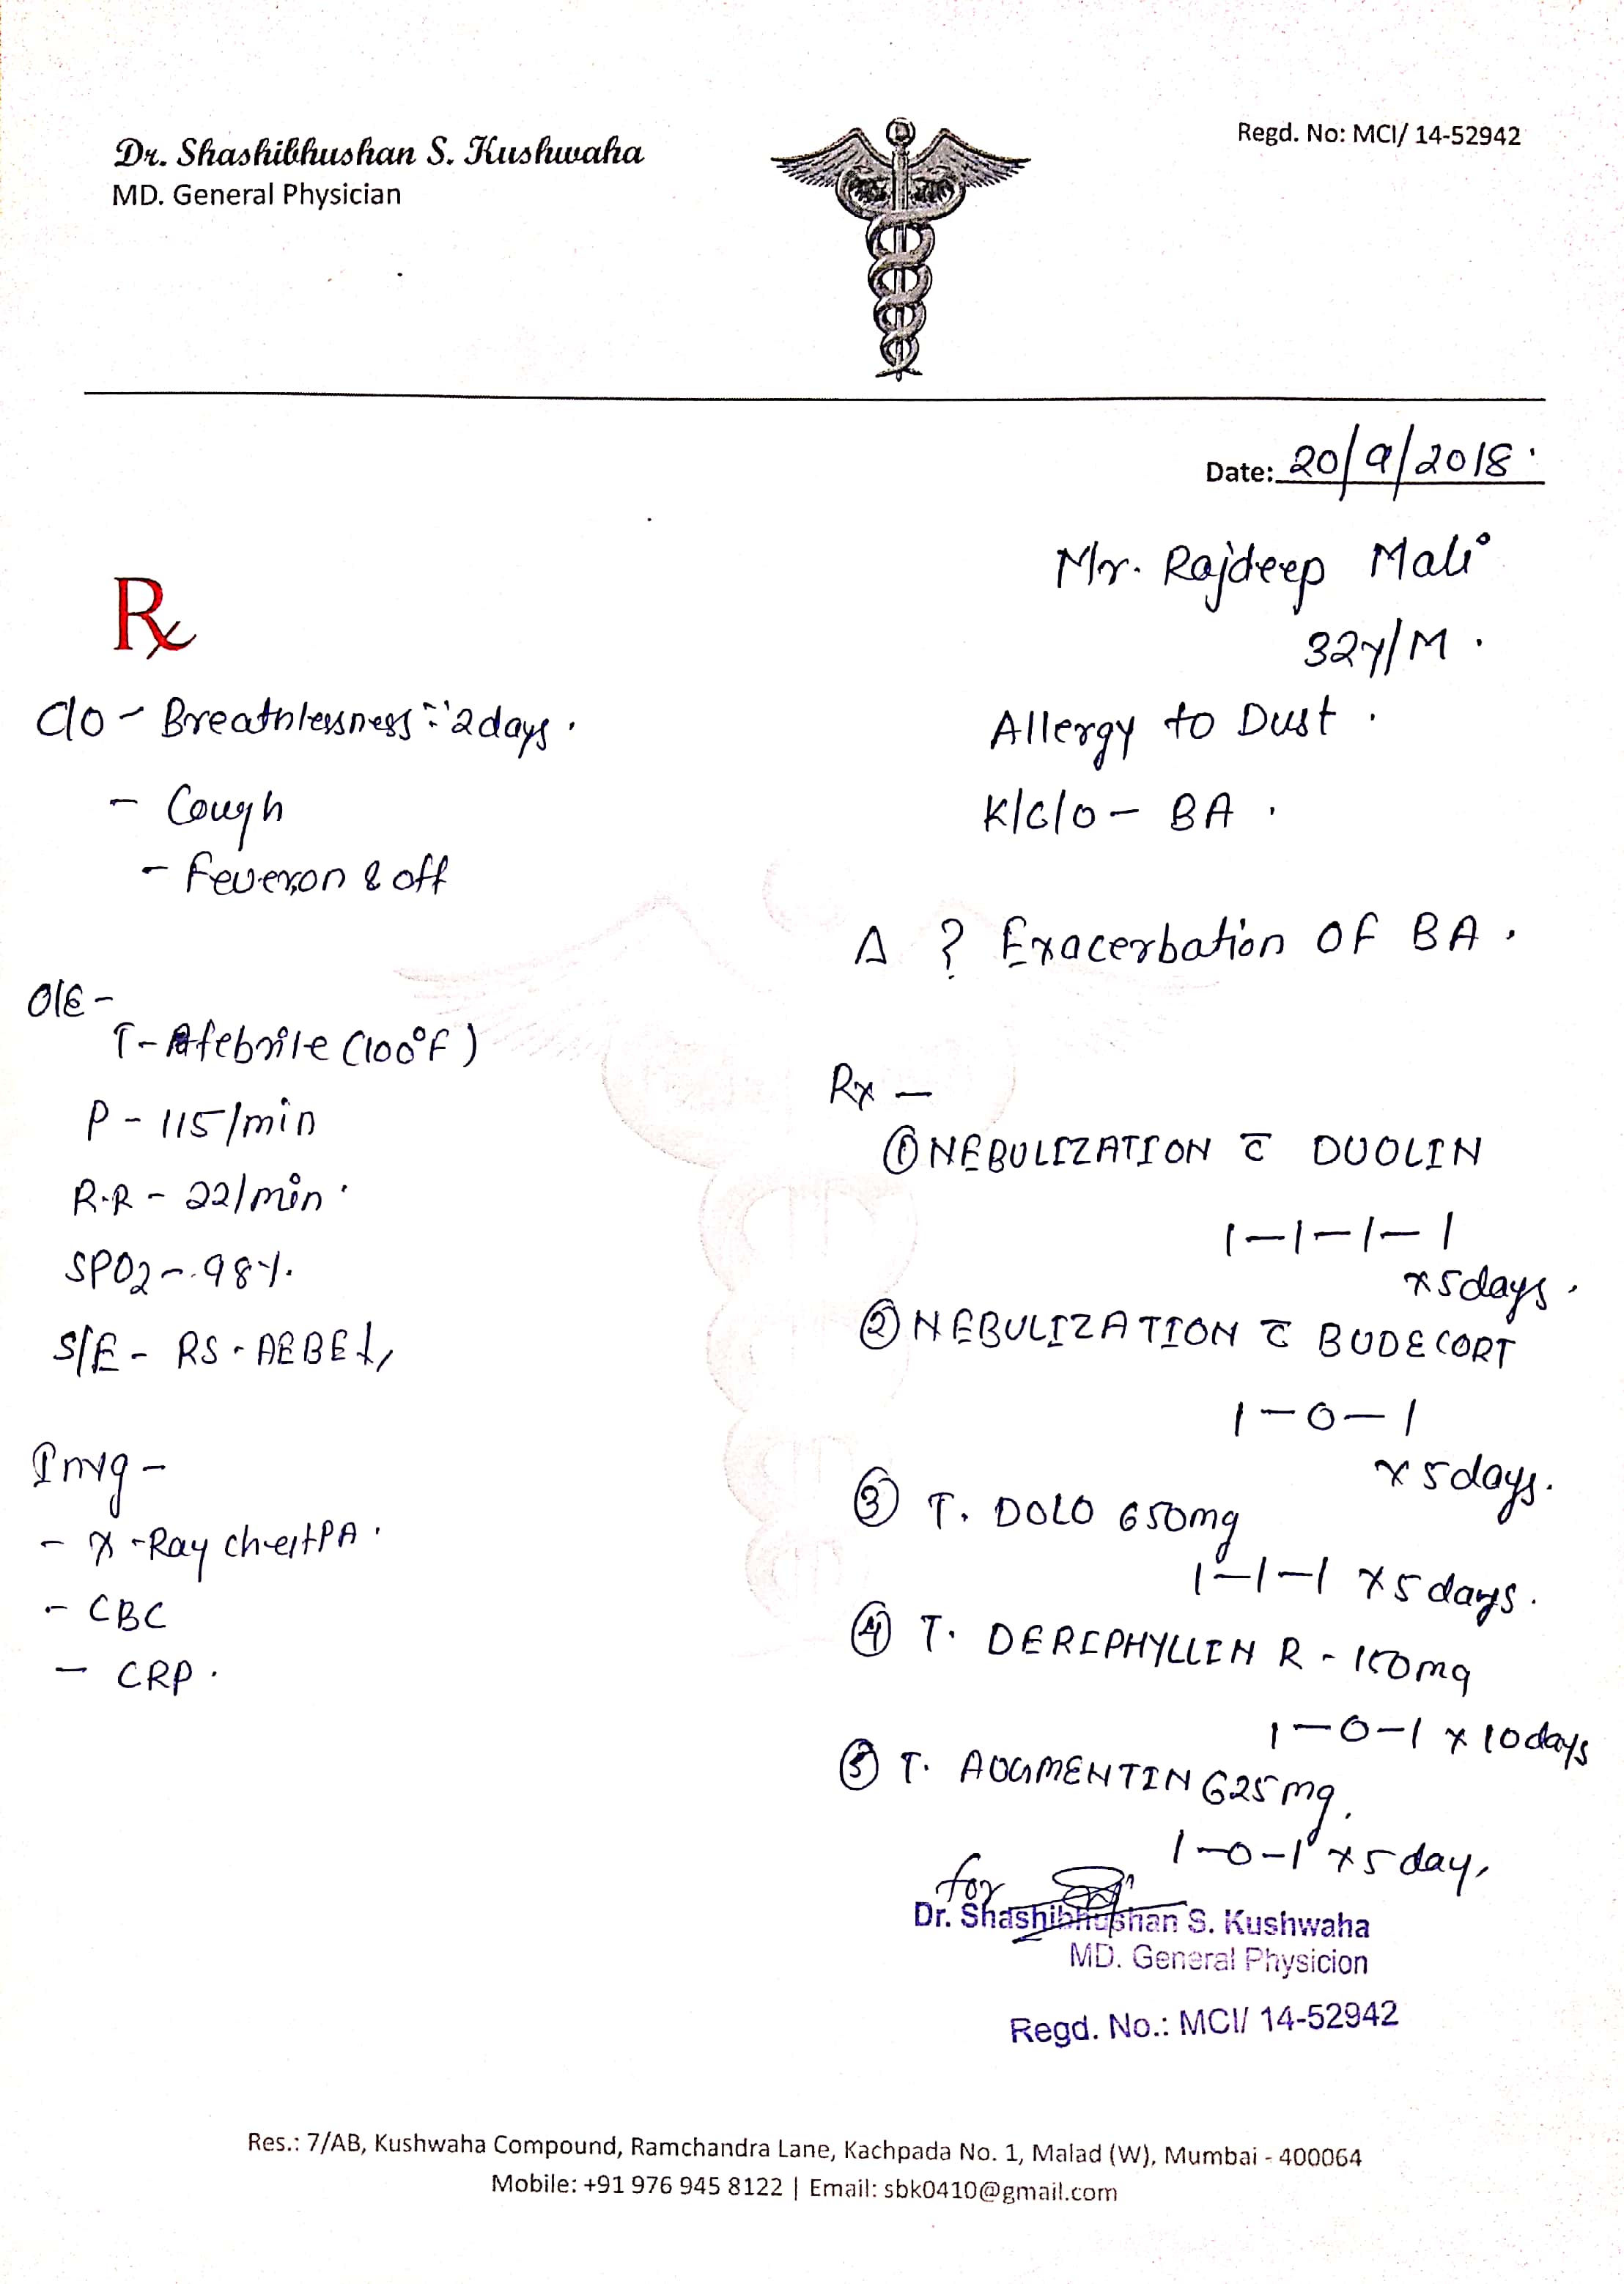 Dr. Shashibhushan S. Kushwaha
MD. General Physician
Regd. No: MCI/ 14-52942
Date: 20/9/2018
Mr. Rajdeep Mali
32y/M
Allergy to Dust
K/C/O - BA
Rx
C/O - Breathlessness 2 days
- Cough
- Fever on & off
O/E -
T - Afebrile (100°F)
P - 115/min
R.R - 22/min
SPO2 - 98%
S/E - RS - AEBE
Invg -
- X-Ray chest PA
- CBC
- CRP
Δ ? Exacerbation OF BA
Rx -
① NEBULIZATION c̅ DUOLIN
1-1-1-1
x 5 days
② NEBULIZATION c̅ BUDECORT
1-0-1
x 5 days.
③ T. DOLO 650mg
1-1-1 x 5 days.
④ T. DERIPHYLLIN R - 150mg
1-0-1 x 10 days
⑤ T. AUGMENTIN 625 mg.
1-0-1 x 5 day,
for
Dr. Shashibhushan S. Kushwaha
MD. General Physicion
Regd. No.: MCI/ 14-52942
Res.: 7/AB, Kushwaha Compound, Ramchandra Lane, Kachpada No. 1, Malad (W), Mumbai - 400064
Mobile: +91 976 945 8122 | Email: sbk0410@gmail.com